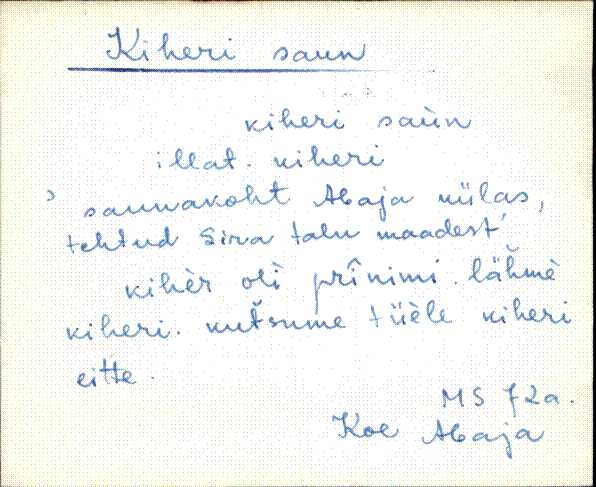 Kiheri saun
kiheri saùn
illat. kiheri
saunakoht Abaja külas,
tehtud Sira talu maadest
kihèr oli prînimi. lähmè
kiheri. kutšume tüèle kiheri
eitte.
MS 72a.
Koe Abaja